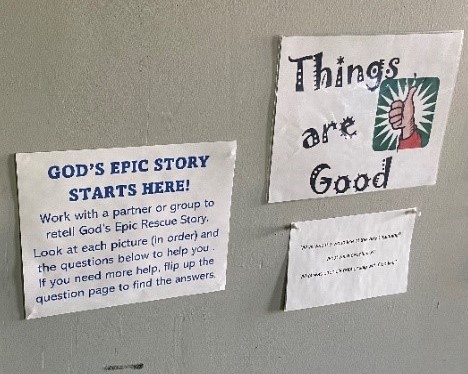 GOD'S EPIC STORY
STARTS HERE!
Work with a partner or group to
retell God's Epic Rescue Story.
Look at each picture (in order) and
the questions below to help you.
If you need more help, flip up the
question page to find the answers.
Things
are
Good